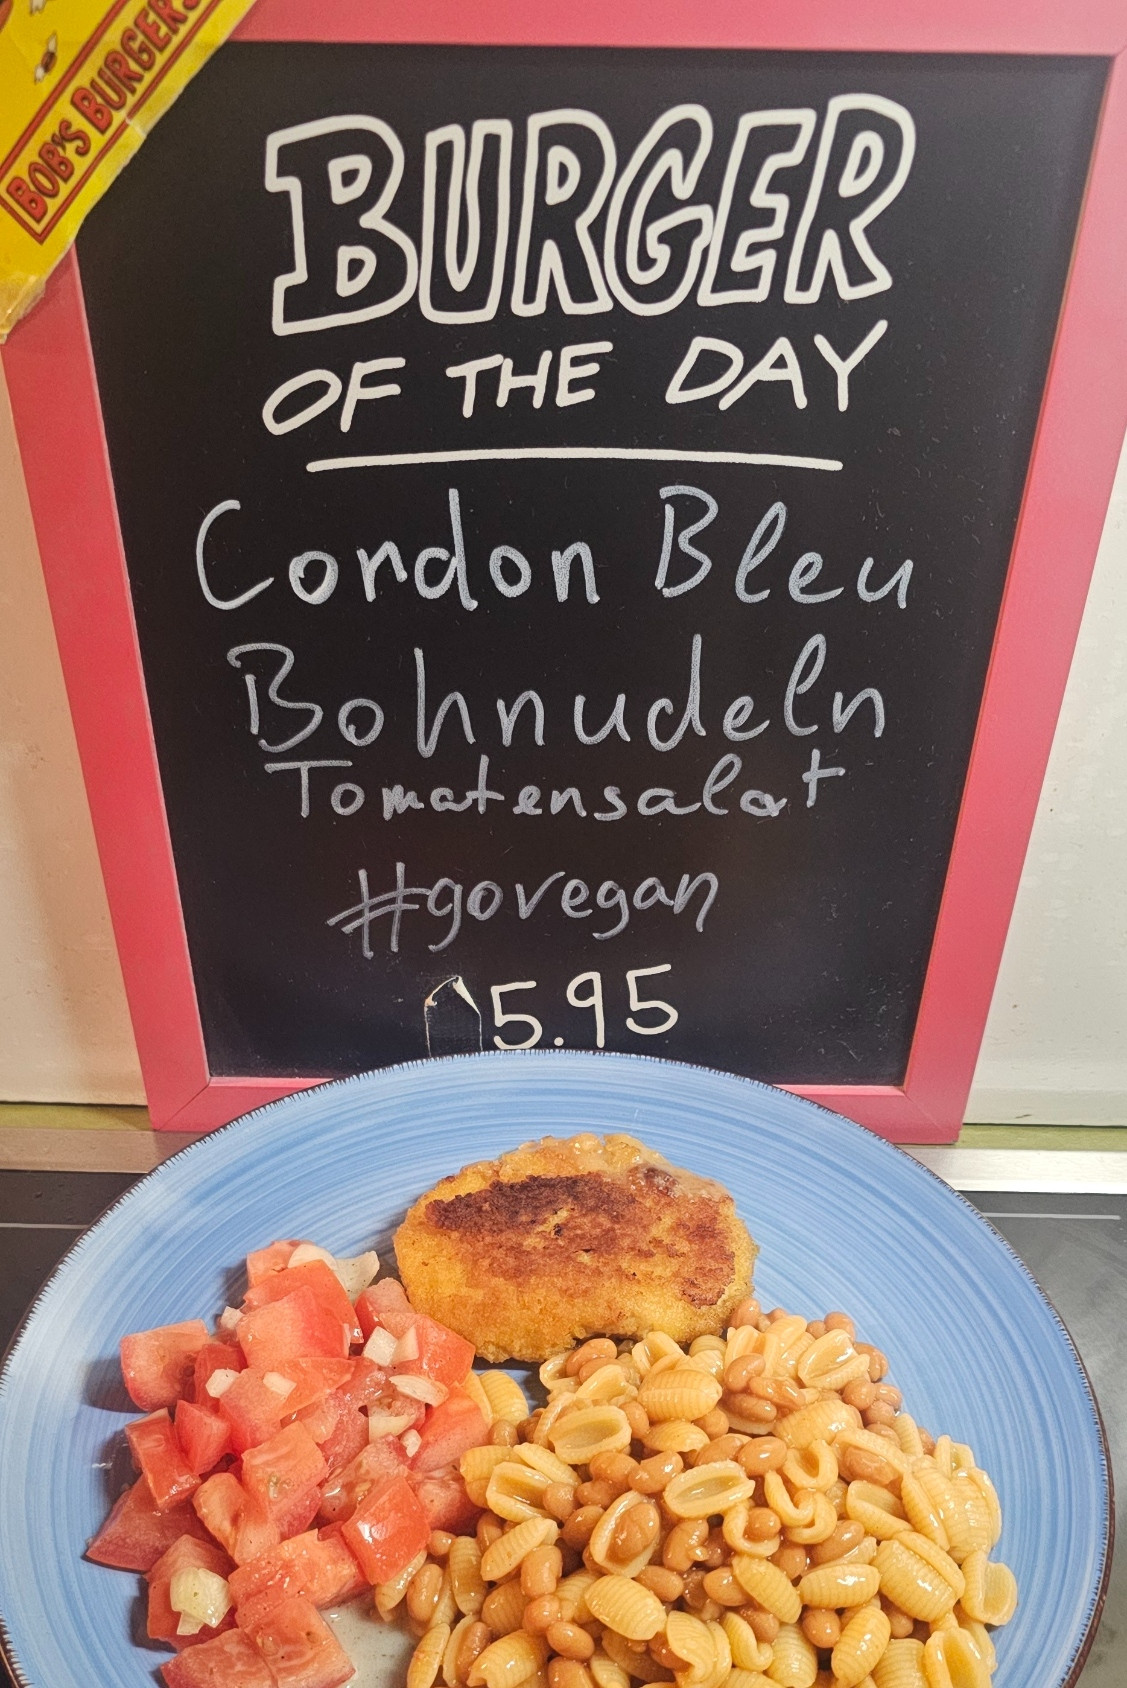 BOB'S BURGERS
BURGER
OF THE DAY
Cordon Bleu
Bohnudeln
Tomatensalat
#govegan
5.95